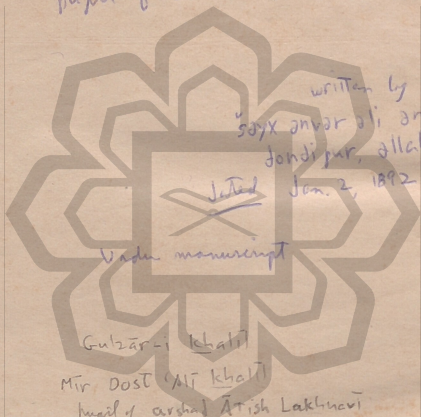 written by
šayx anvar ali
dondipur, allal
dated Jan. 2, 1892
Urdu manuscript
Gulzār-i Khalīl
Mīr Dost ʿAlī Khalīl
pupil of arshad Ātish Lakhnavī